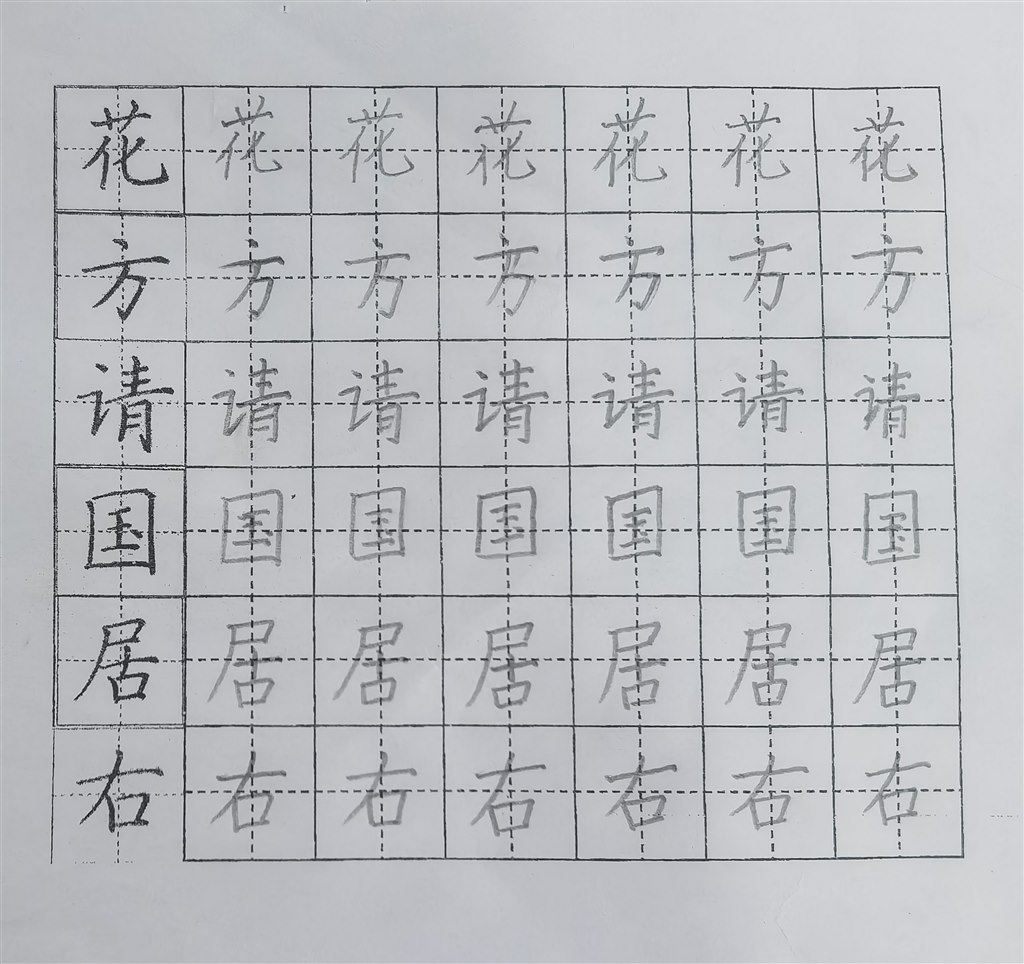 花花花花花花花
方方方方方方方
请请请请请请请
国国国国国国国
居居居居居居居
右右右右右右右